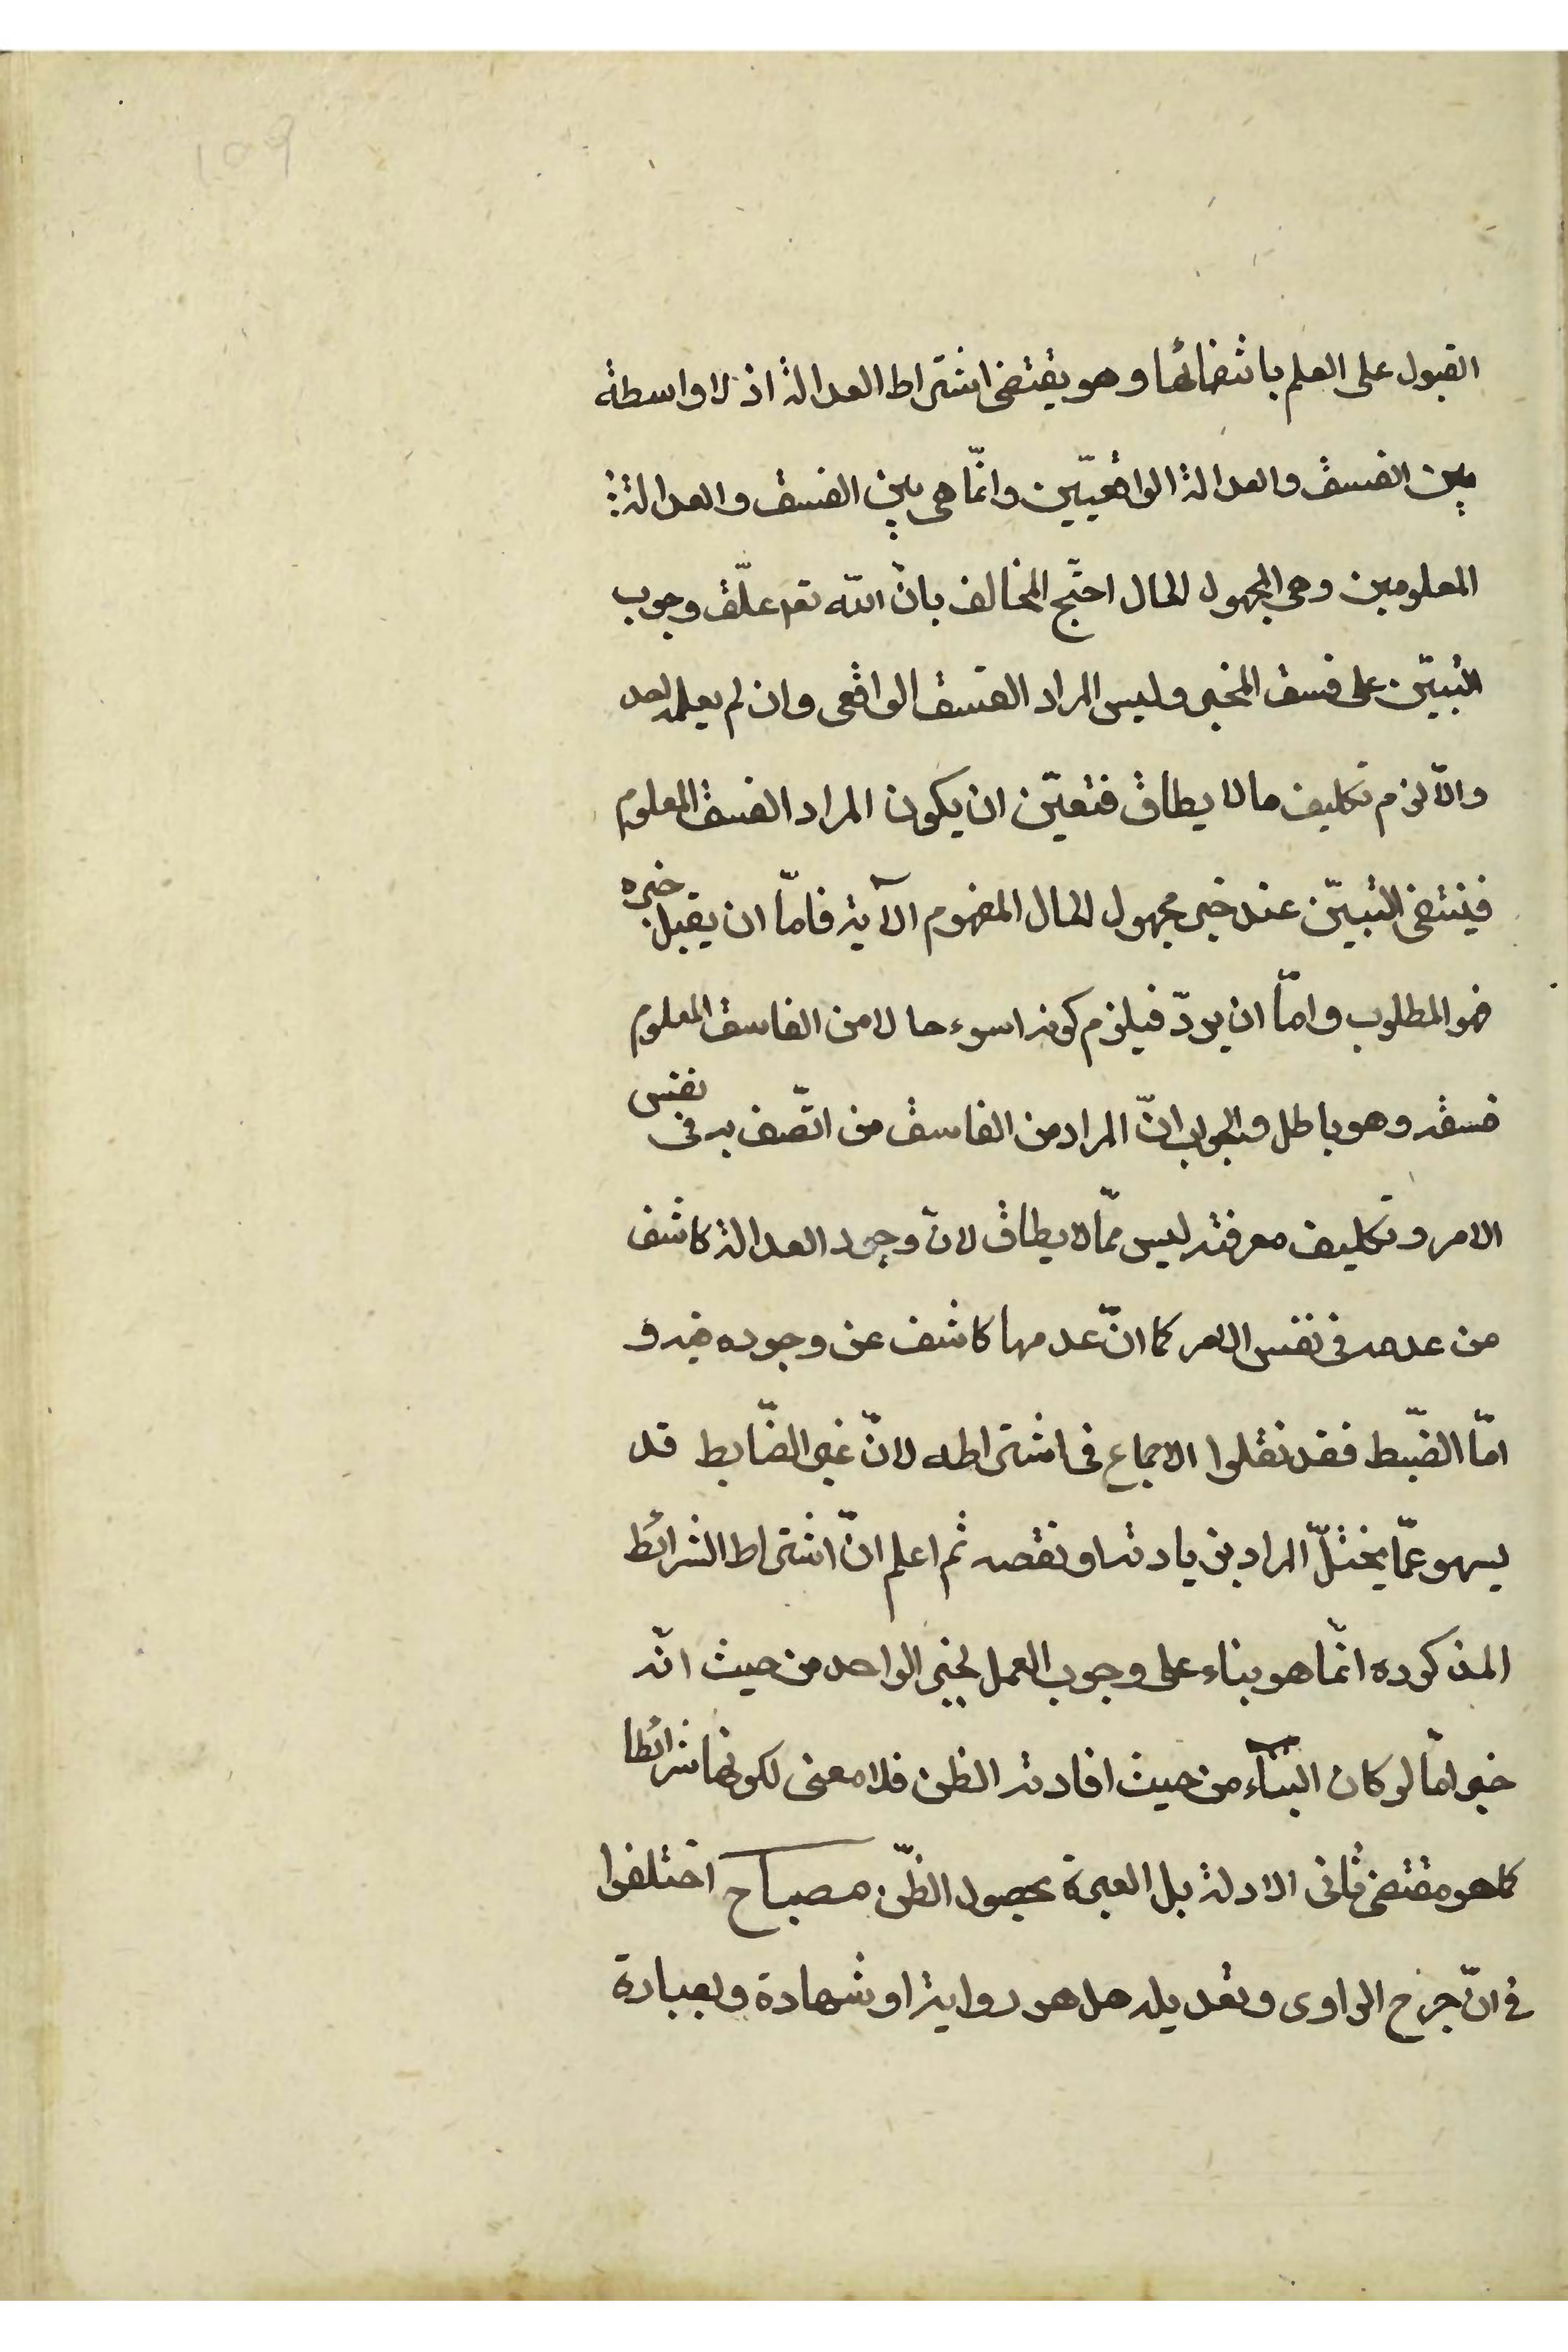 ١٥٩
القبول على العلم بانتفائها وهو يقتضى اشتراط العدالة اذ لا واسطة
بين الفسق والعدالة الواقعيّين وانّما هى بين الفسق والعدالة
المعلومين وهى المجهول الحال احتجّ المخالف بانّ الله تعم علّق وجوب
التبيّن على فسق المخبر وليس المراد الفسق الواقعى وان لم يعلمه احد
والّا لزم تكليف ما لا يطاق فتعيّن ان يكون المراد الفسق المعلوم
فينتفى التبيّن عند خبر مجهول الحال المفهوم الآية فامّا ان يقبل خبره
فهو المطلوب وامّا ان يردّ فيلزم كونه اسوء حالا من الفاسق المعلوم
فسقه وهو باطل والجواب انّ المراد من الفاسق من اتّصف به فى نفس
الامر وتكليف معرفته ليس ممّا لا يطاق لانّ وجود العدالة كاشف
من عدمه فى نفس الامر كما انّ عدمها كاشف عن وجوده فيه و
امّا الضّبط فقد نقلوا الاجماع فى اشتراطه لانّ غير الضّابط قد
يسهو عمّا يختلّ المراد بزيادته او نقصه ثم اعلم انّ اشتراط الشرائط
المذكوره انّما هو بناء على وجوب العمل بخبر الواحد من حيث انّه
خبر امّا لو كان البناء من حيث افادته الظن فلا معنى لكونها شرائطا
كما هو مقتضى ثانى الادلة بل العبرة بحصول الظنّ مصباح اختلفوا
فى انّ جرح الراوى وتعديله هل هو رواية او شهادة وبعبارة